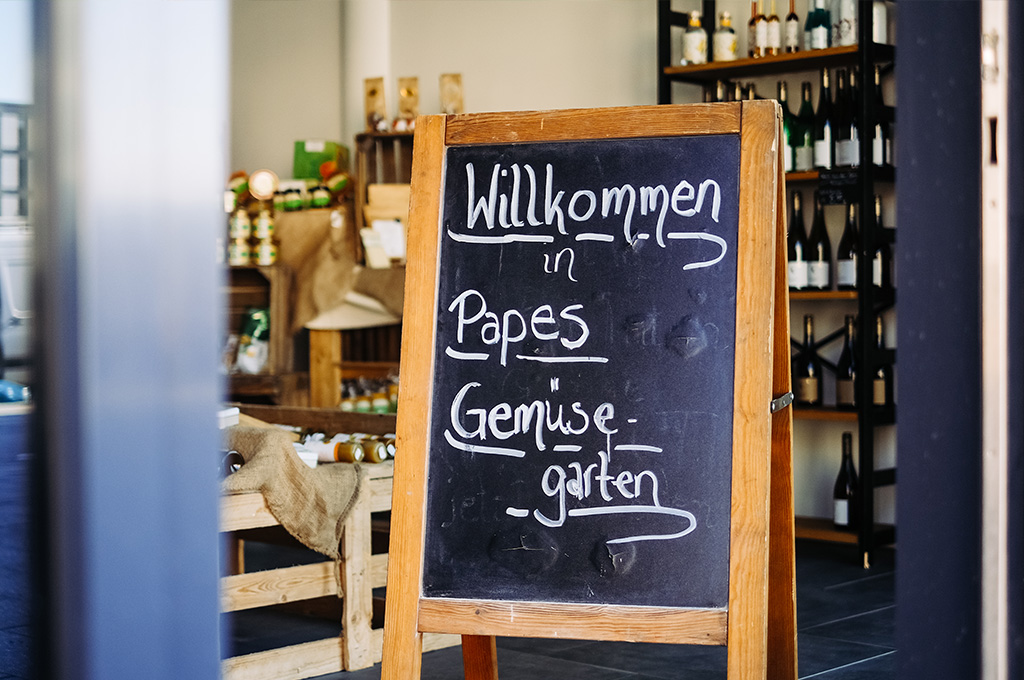 Willkommen
in
Papes
Gemüse-
garten